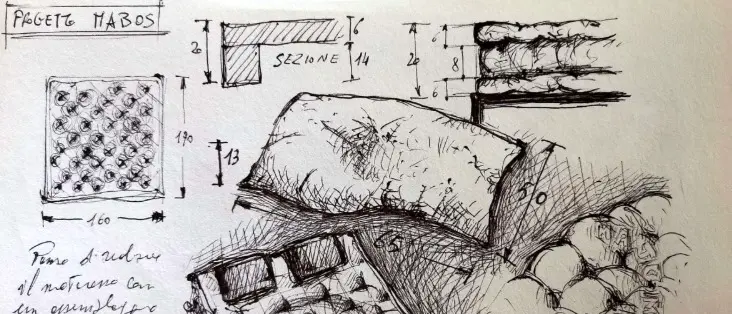 PROGETTO MABOS
20
6
14
SEZIONE
20
6
8
6
190
160
13
50
65
il materasso con
un assemblaggio